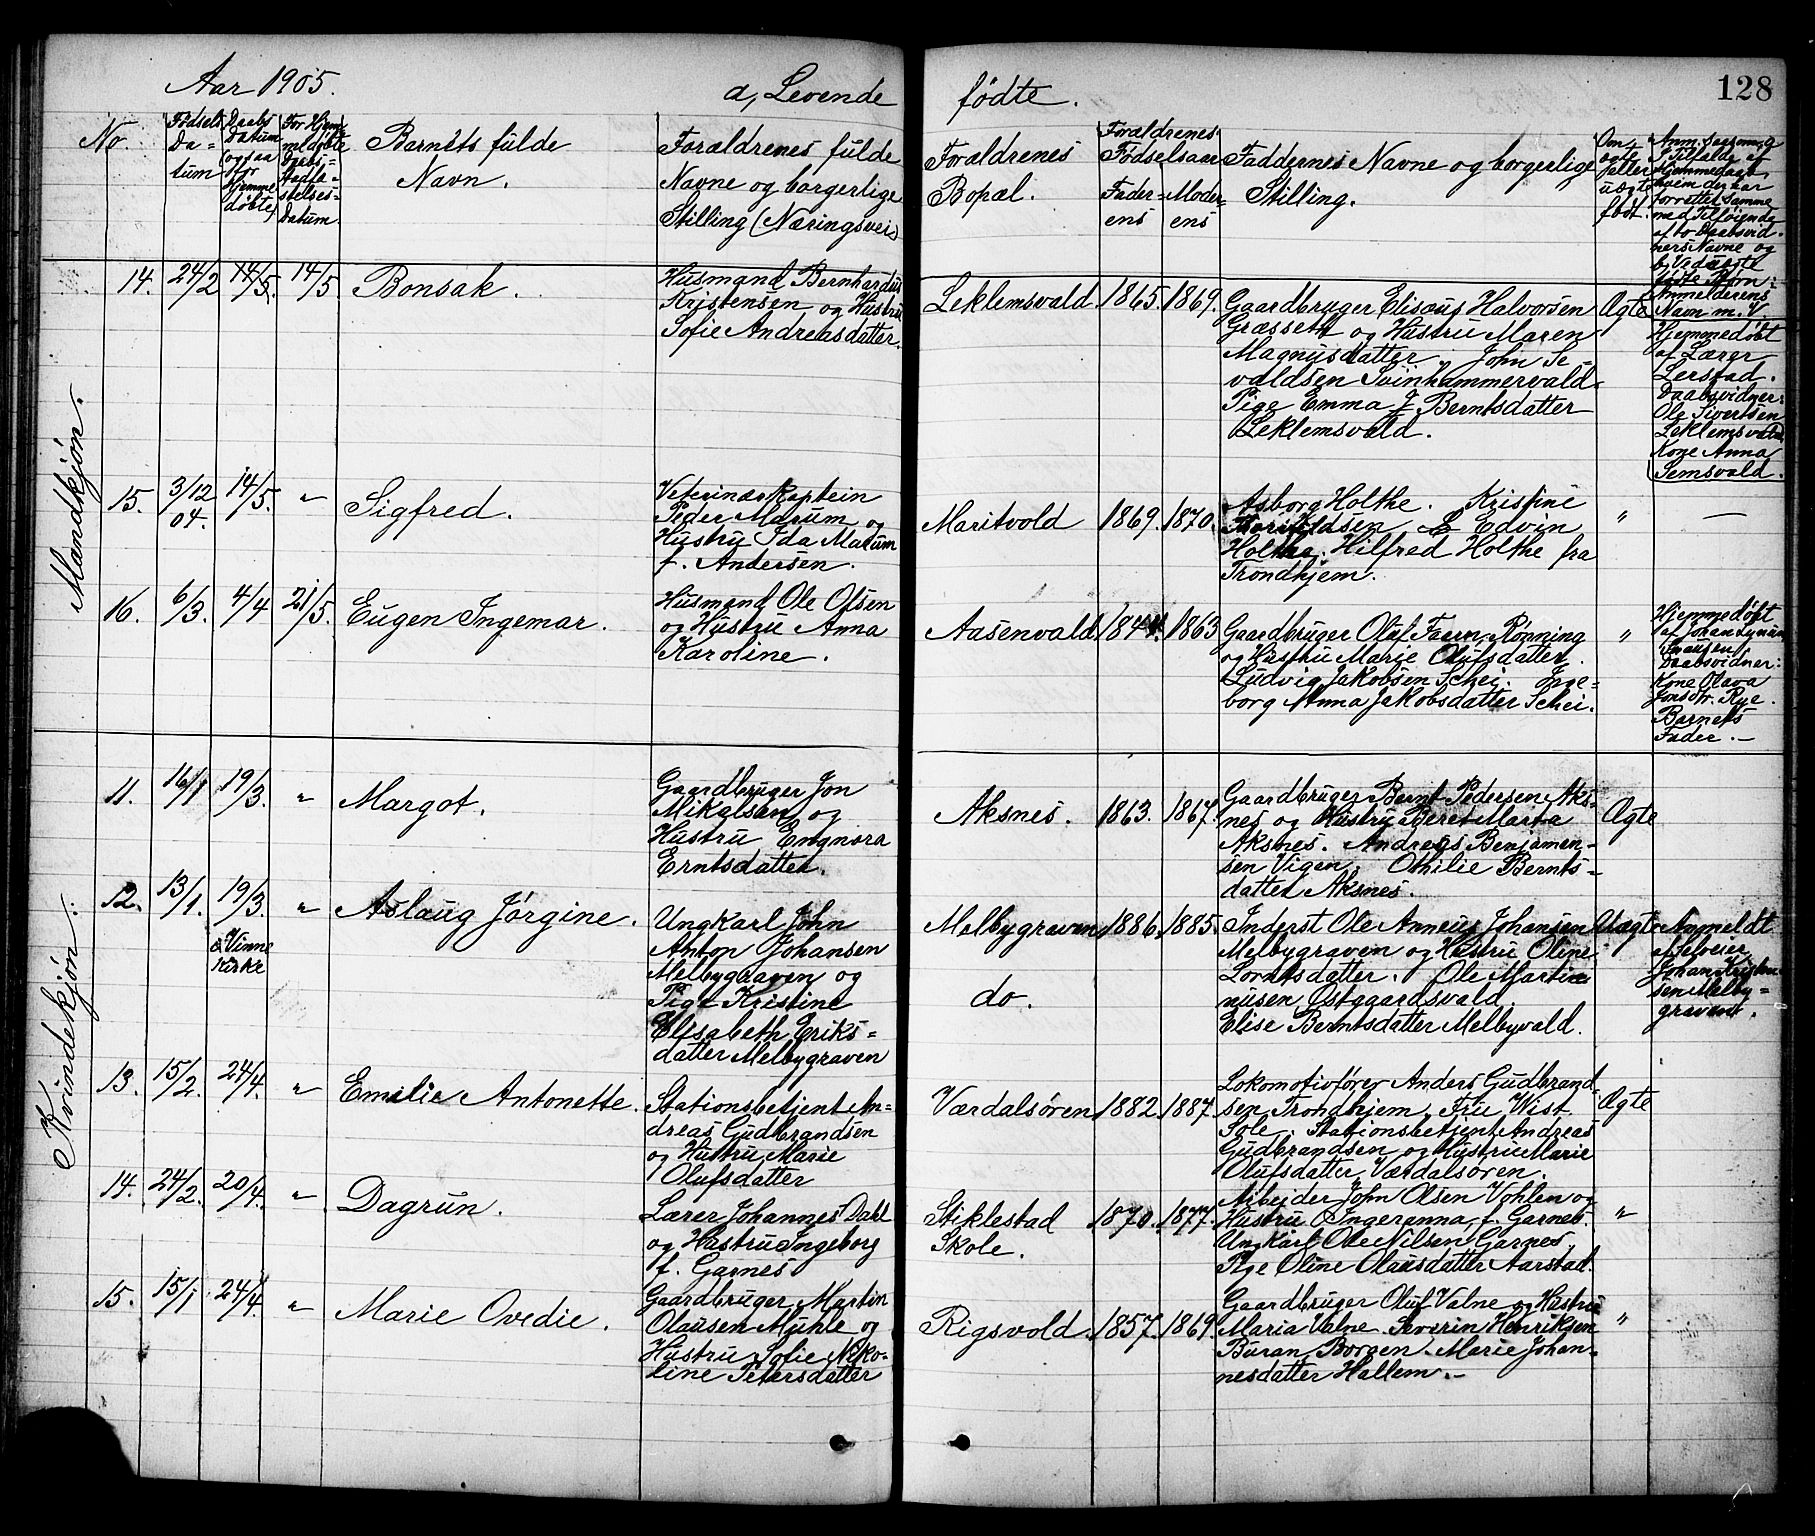 128
Aar 1905.
a, Levende
fødte.
No.
Fødsels
Da-
tum
Daabs
Datum
(ogsaa
for
Hjemme
døbte)
For Hjem-
medøbte
Daabs-
Stadfæ-
stelses-
Datum.
Barnets fulde
Navn.
Forældrenes fulde
Navne og borgerlige
Stilling (Næringsvei)
Forældrenes
Bopæl.
Forældrenes
Fødselsaar
Fader-
ens
Moder-
ens
Faddernes Navne og borgerlige
Stilling.
Om
ægte
eller
uægte
født.
Mandkjøn.
14.
24/2
14/5.
14/5.
Bonsak.
Husmand Bernhardus
Kristensen og Hustru
Sofie Andreasdatter.
Leklemsvald.
1865.
1869.
Gaardbruger Elisæus Halvorsen
Græsseth og Hustru Maren
Magnusdatter. John Se-
valdsen Svinhammervald.
Pige Emma J. Berntsdatter
Leklemsvald.
Ægte
Hjemmedøbt
af Lærer
Lerstad.
Daabsvidner:
Ole Sivertsen
Leklemsvald
Kone Anna
Semsvald.
15.
3/12
04.
14/5.
"
Sigfred.
Veterinærkaptein
Peder Marum og
Hustru Ida Marum
f. Andersen.
Maritvold
1869.
1870.
Asborg Holthe. Kristine
Edvin
Holthe. Hilfred Holthe fra
Trondhjem.
"
—
16.
6/3.
4/4
21/5.
Eugen Ingemar.
Husmand Ole Olsen
og Hustru Anna
Karoline.
Aasenvald.
1863
Gaardbruger Oluf Faren Rønning
og Hustru Marie Olufsdatter.
Ludvig Jakobsen Schei. Inge-
borg Anna Jakobsdatter Schei.
"
Hjemmedøbt
af Johan
Daabsvidner:
Kone Olava
Jonsdtr. Rye.
Barnets
Fader.—
Kvindekjøn.
11.
16/1
19/3.
"
Margot.
Gaardbruger Jon
Mikalsen og
Hustru Engnora
Erntsdatter.
Aksnes.
1863.
1867.
Gaardbruger Bernt Pedersen Aks-
nes og Hustru Beret Marta
Aksnes. Andreas Benjamin-
sen Vigen. Othilie Bernts-
datter Aksnes.
Ægte
12.
13/1.
19/3.
i Vinne
Kirke
"
Aslaug Jørgine.
Ungkarl John
Anton Johansen
Melbygraven og
Pige Kristine
Elisabeth Eriks-
datter Melbygraven
Melbygraven
do.
1886.
1885.
Inderst Ole Anneus Johansen
Melbygraven og Hustru Oline
Lorntsdatter. Ole Martin
nusen Østgaardsvald.
Elise Berntsdatter Melbyvald.
Uægte
Anmeldt
af Selveier
Johan Kristen-
sen Melby-
graven.
13.
15/2.
24/4.
"
Emilie Antonette.
Stationsbetjent An-
dreas Gudbrandsen
og Hustru Marie
Olufsdatter
Værdalsøren
1882.
1887.
Lokomotivfører Anders Gudbrand-
sen Trondhjem. Fru Wist
Sole. Stationsbetjent Andreas
Gudbrandsen og Hustru Marie
Olufsdatter, Værdalsøren.
Ægte
14.
24/2.
20/4.
"
Dagrun.
Lærer Johannes Dahl
og Hustru Ingeborg
f. Garnes
Stiklestad
Skole.
1870.
1877.
Arbeider John Olsen Vohlen og
Hustru Ingeranna, f. Garnes.
Ungkarl Ole Nilsen Garnes.
Pige Oline Olausdatter Aarstad.
"
15.
15/1
24/4.
"
Marie Ovedie.
Gaardbruger Martin
Olausen Muhle og
Hustru Sofie Niko-
line Petersdatter
Rigsvold.
1857.
1869.
Gaardbruger Oluf Valne og Hustru
Maria Valne. Severin Henriksen
Buran Borgen. Marie Johan-
nesdatter Hallem.—
"